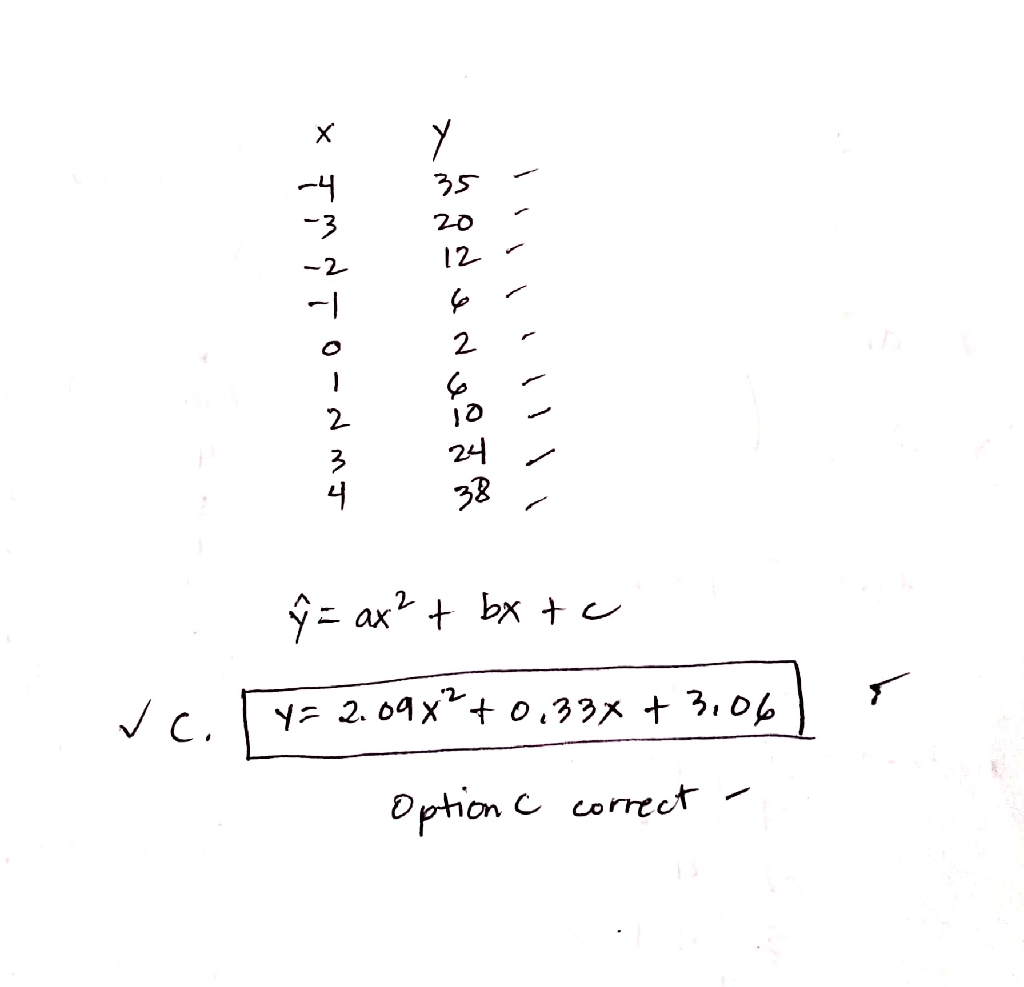 x y
-4 35
-3 20
-2 12
-1 6
0 2
1 6
2 10
3 24
4 38
ŷ = ax² + bx + c
✓ C. y = 2.09x² + 0.33x + 3.06
Option C correct